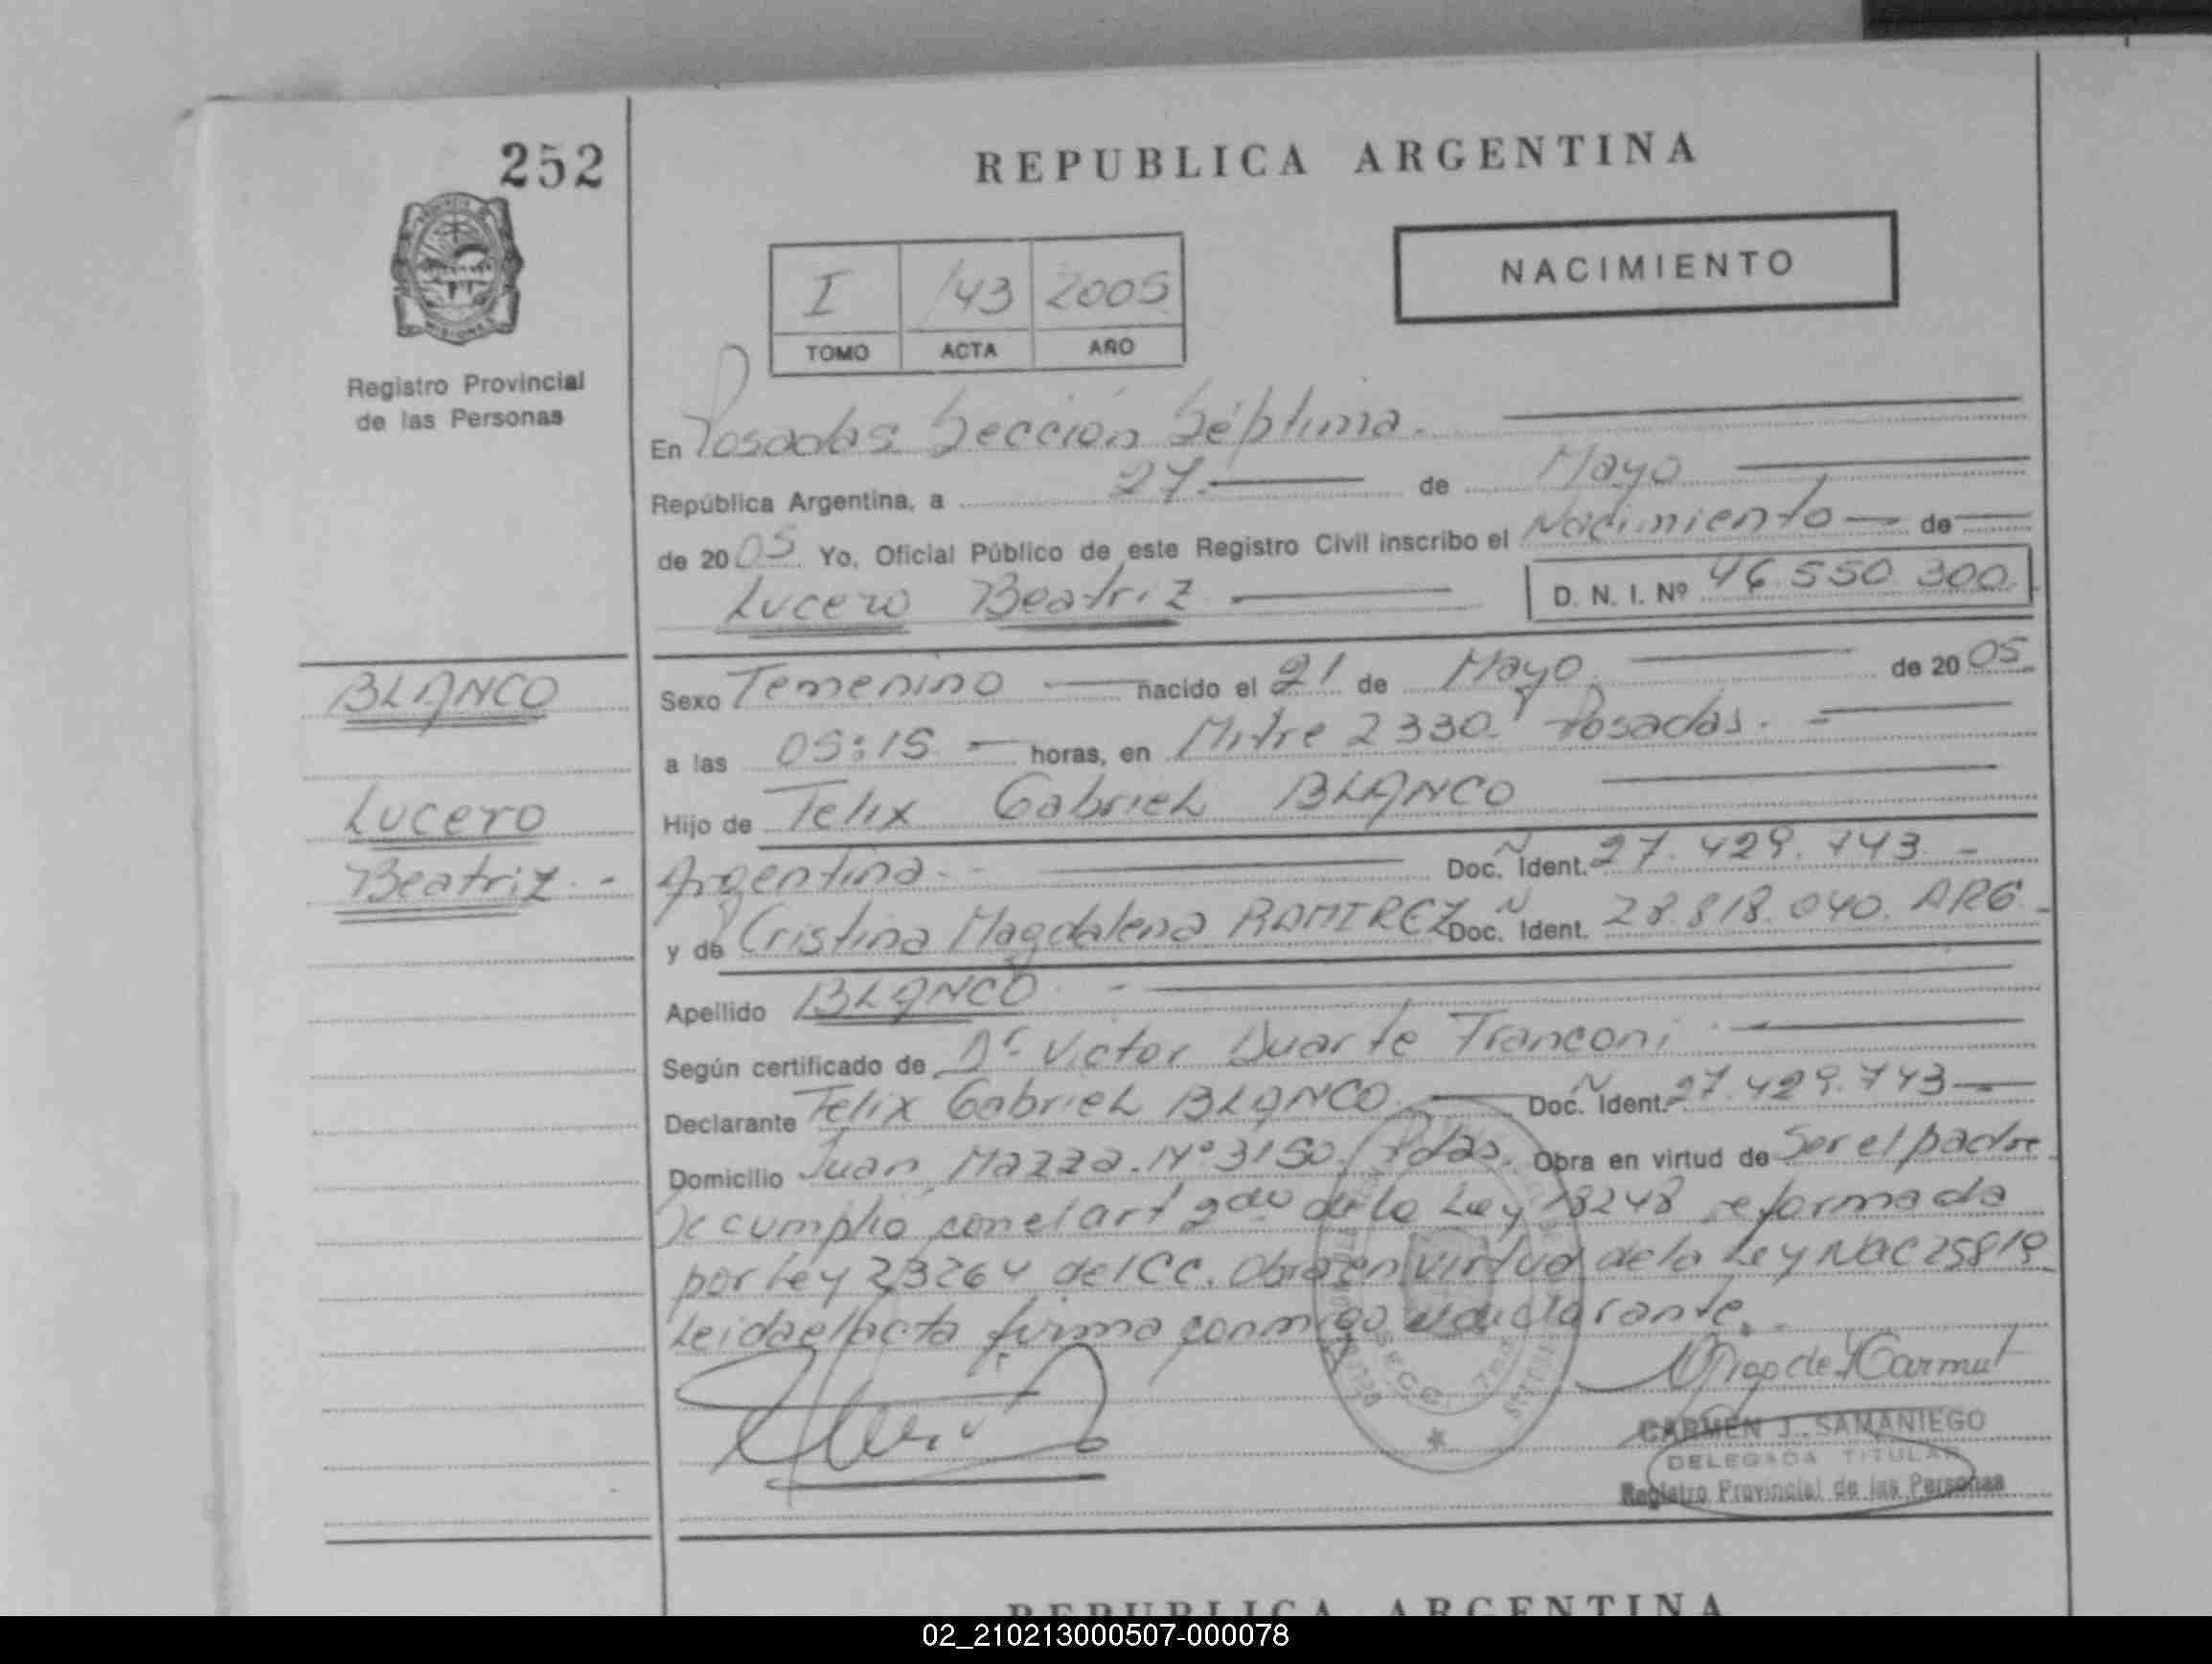 252
REPUBLICA ARGENTINA
NACIMIENTO
I 143 2005
TOMO ACTA AÑO
Registro Provincial
de las Personas
En Posadas Sección Séptima.
República Argentina, a 27. de Mayo
de 2005 Yo, Oficial Público de este Registro Civil inscribo el Nacimiento de
Lucero Beatriz D. N. I. Nº 46.550.300.
BLANCO
Sexo Femenino nacido el 21 de Mayo de 2005
a las 05:15 horas, en Mitre 2330. Posadas.
Lucero
Hijo de Felix Gabriel BLANCO
Beatriz.-
Argentina. Doc. Ident. 27.429.743 -
y de Cristina Magdalena RAMIREZ Doc. Ident. 28.818.040. ARG
Apellido BLANCO
Según certificado de Dr Victor Duarte Franconi
Declarante Felix Gabriel BLANCO Doc. Ident. 27.429.743
Domicilio Juan Mazza. Nº 3150 / Pdas. Obra en virtud de Ser el padre
Se cumplió con el art 2do de la Ley 18248 reformada
por Ley 23264 del CC. Obra en virtud de la Ley NAC 25819
Leida el acta firma conmigo el declarante.
CARMEN J. SAMANIEGO
DELEGADA TITULAR
Registro Provincial de las Personas
REPUBLICA ARGENTINA
02_210213000507-000078